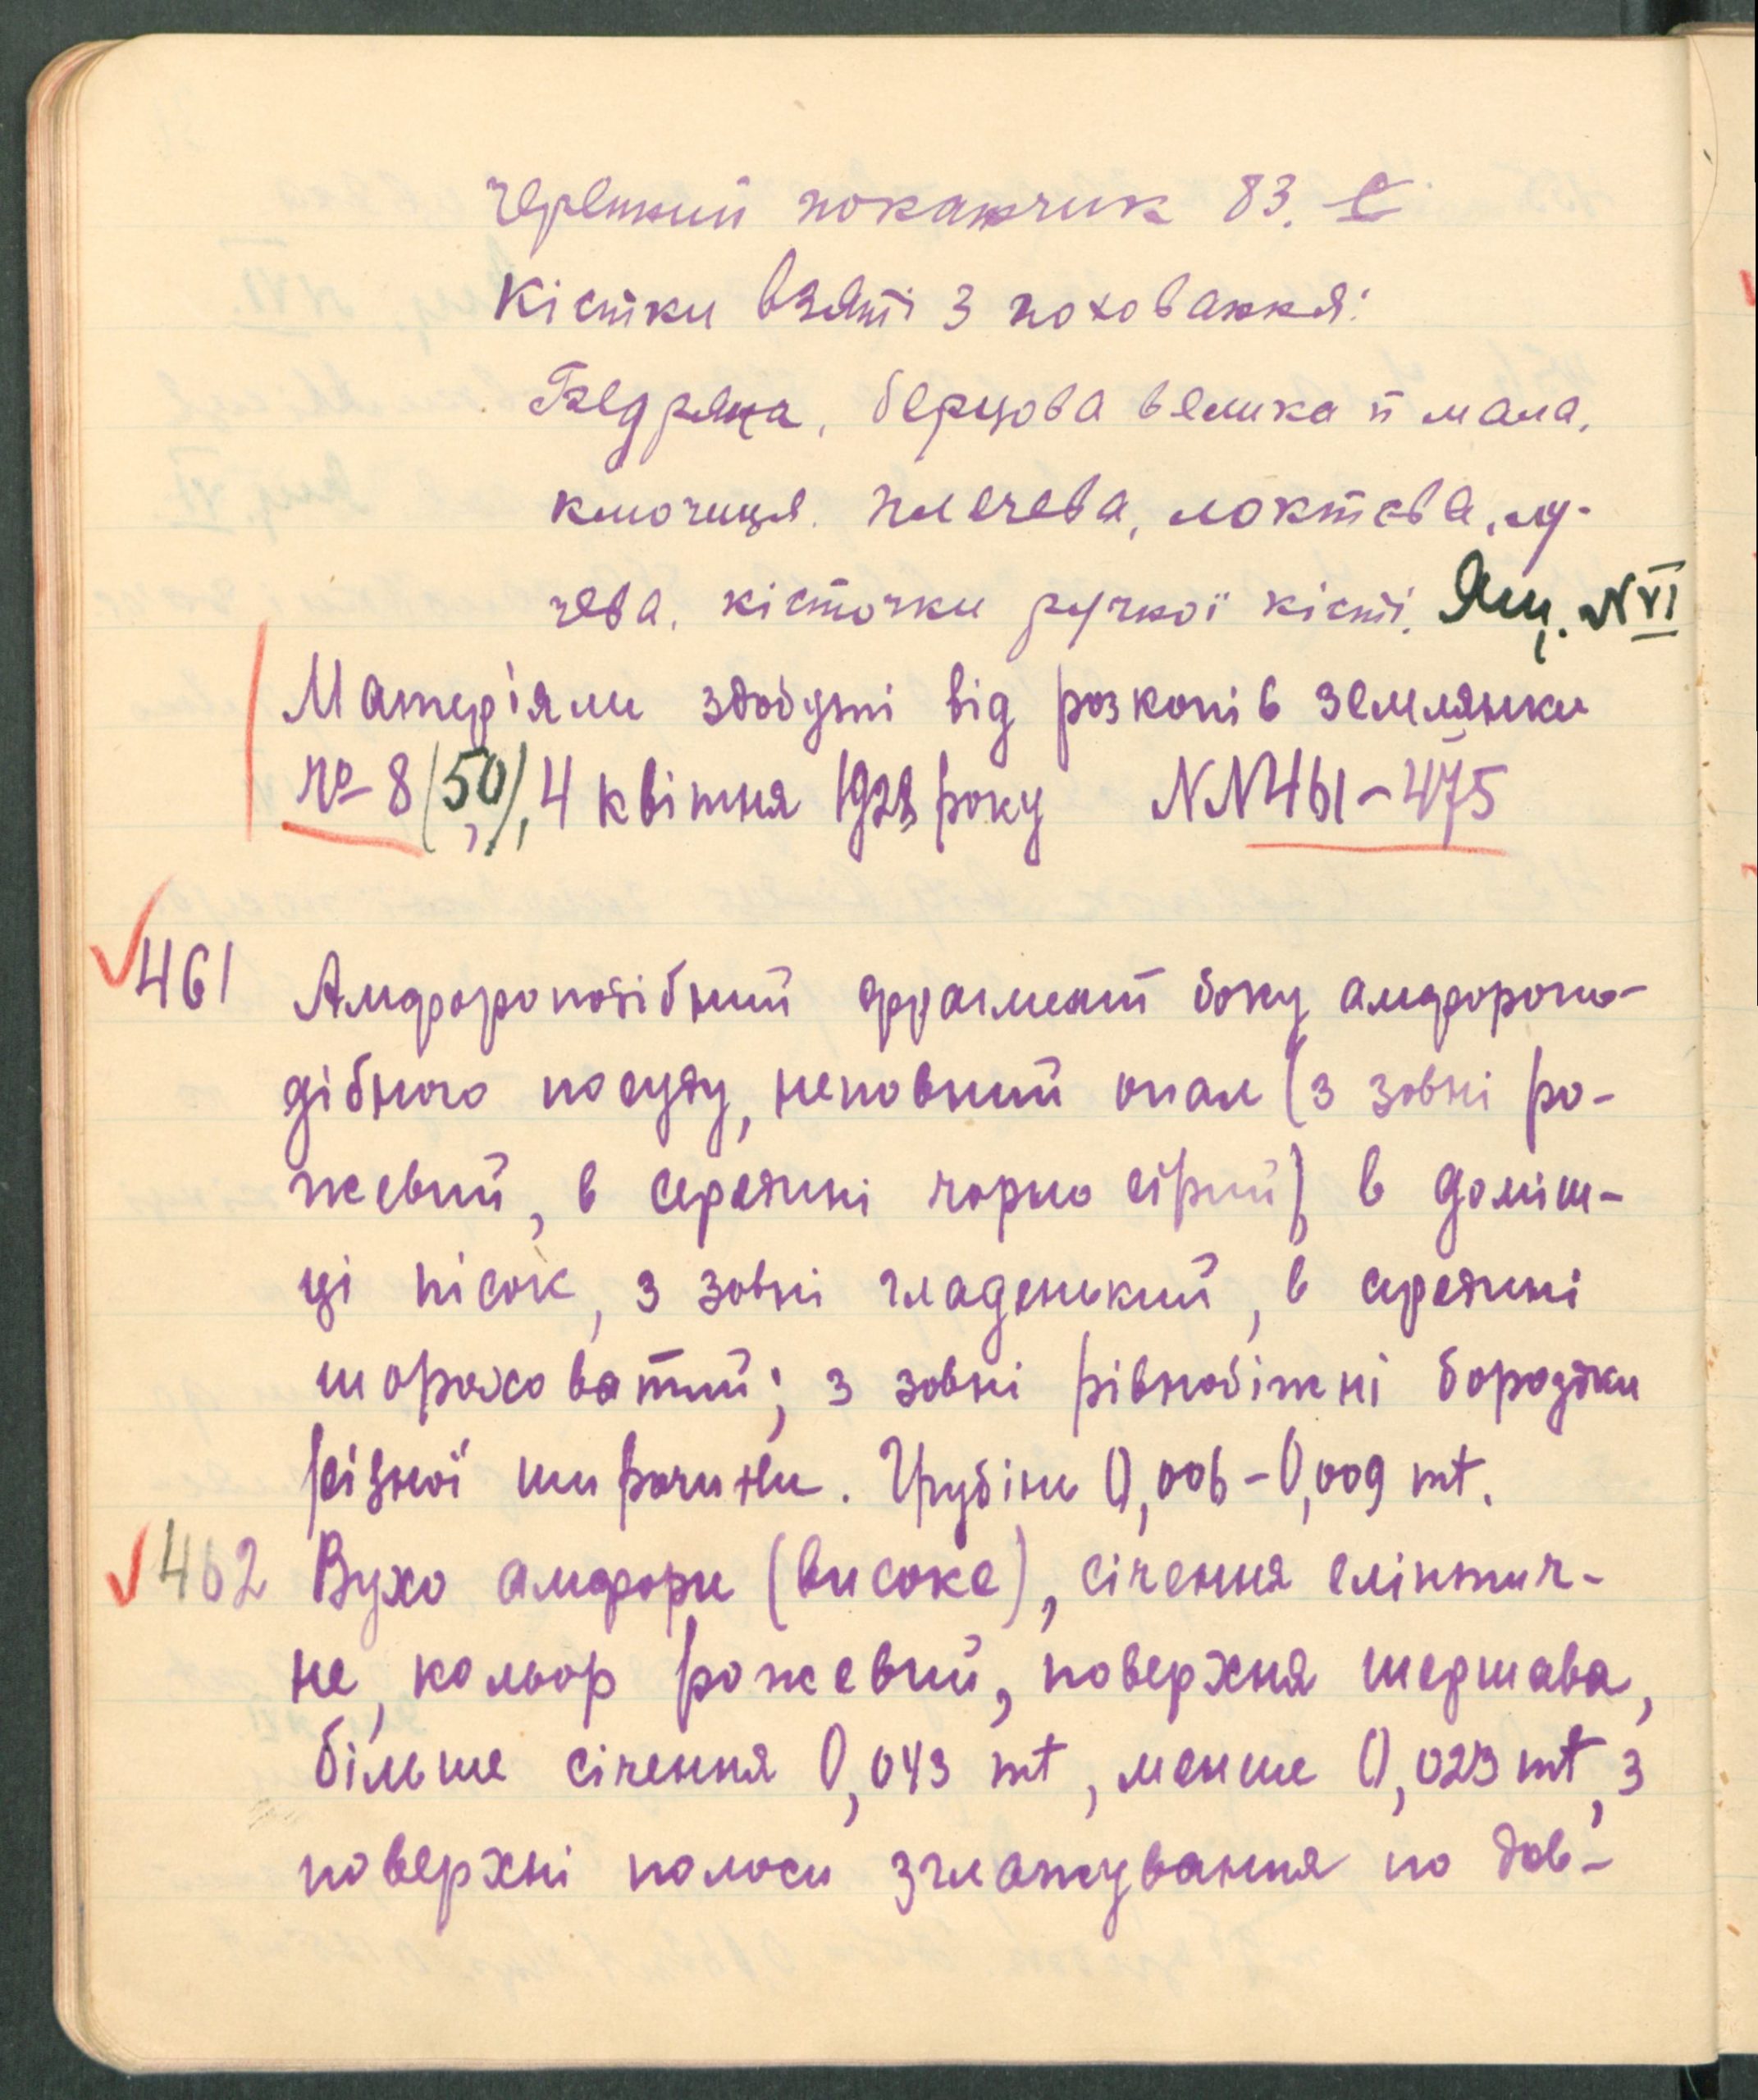 черепний покажчик 83. е
Кістки взяті з поховання:
Бедрена, берцова велика й мала,
ключиця, плечева, локтева, лу-
чева, кісточки ручної кісті. Ящ. N VI
Матер'яли здобуті від розкопів землянки
№ 8 (50), 4 квітня 1928 року NN 461-475
461 Амфороподібний фрагмент боку амфоропо-
дібного посуду, неповний опал (з зовні ро-
жевий, в середині чорно сірий) в доміш-
ці пісок, з зовні гладенький, в середині
шороховатий; з зовні рівнобіжні бороздки
різної ширачини. Грубіни 0,006-0,009 mt.
462 Вухо амфори (високе), січення еліптич-
не, кольор рожевий, поверхня шершава,
більше січення 0,043 mt, менше 0,023 mt, з
поверхні полоси згладжування по дов-